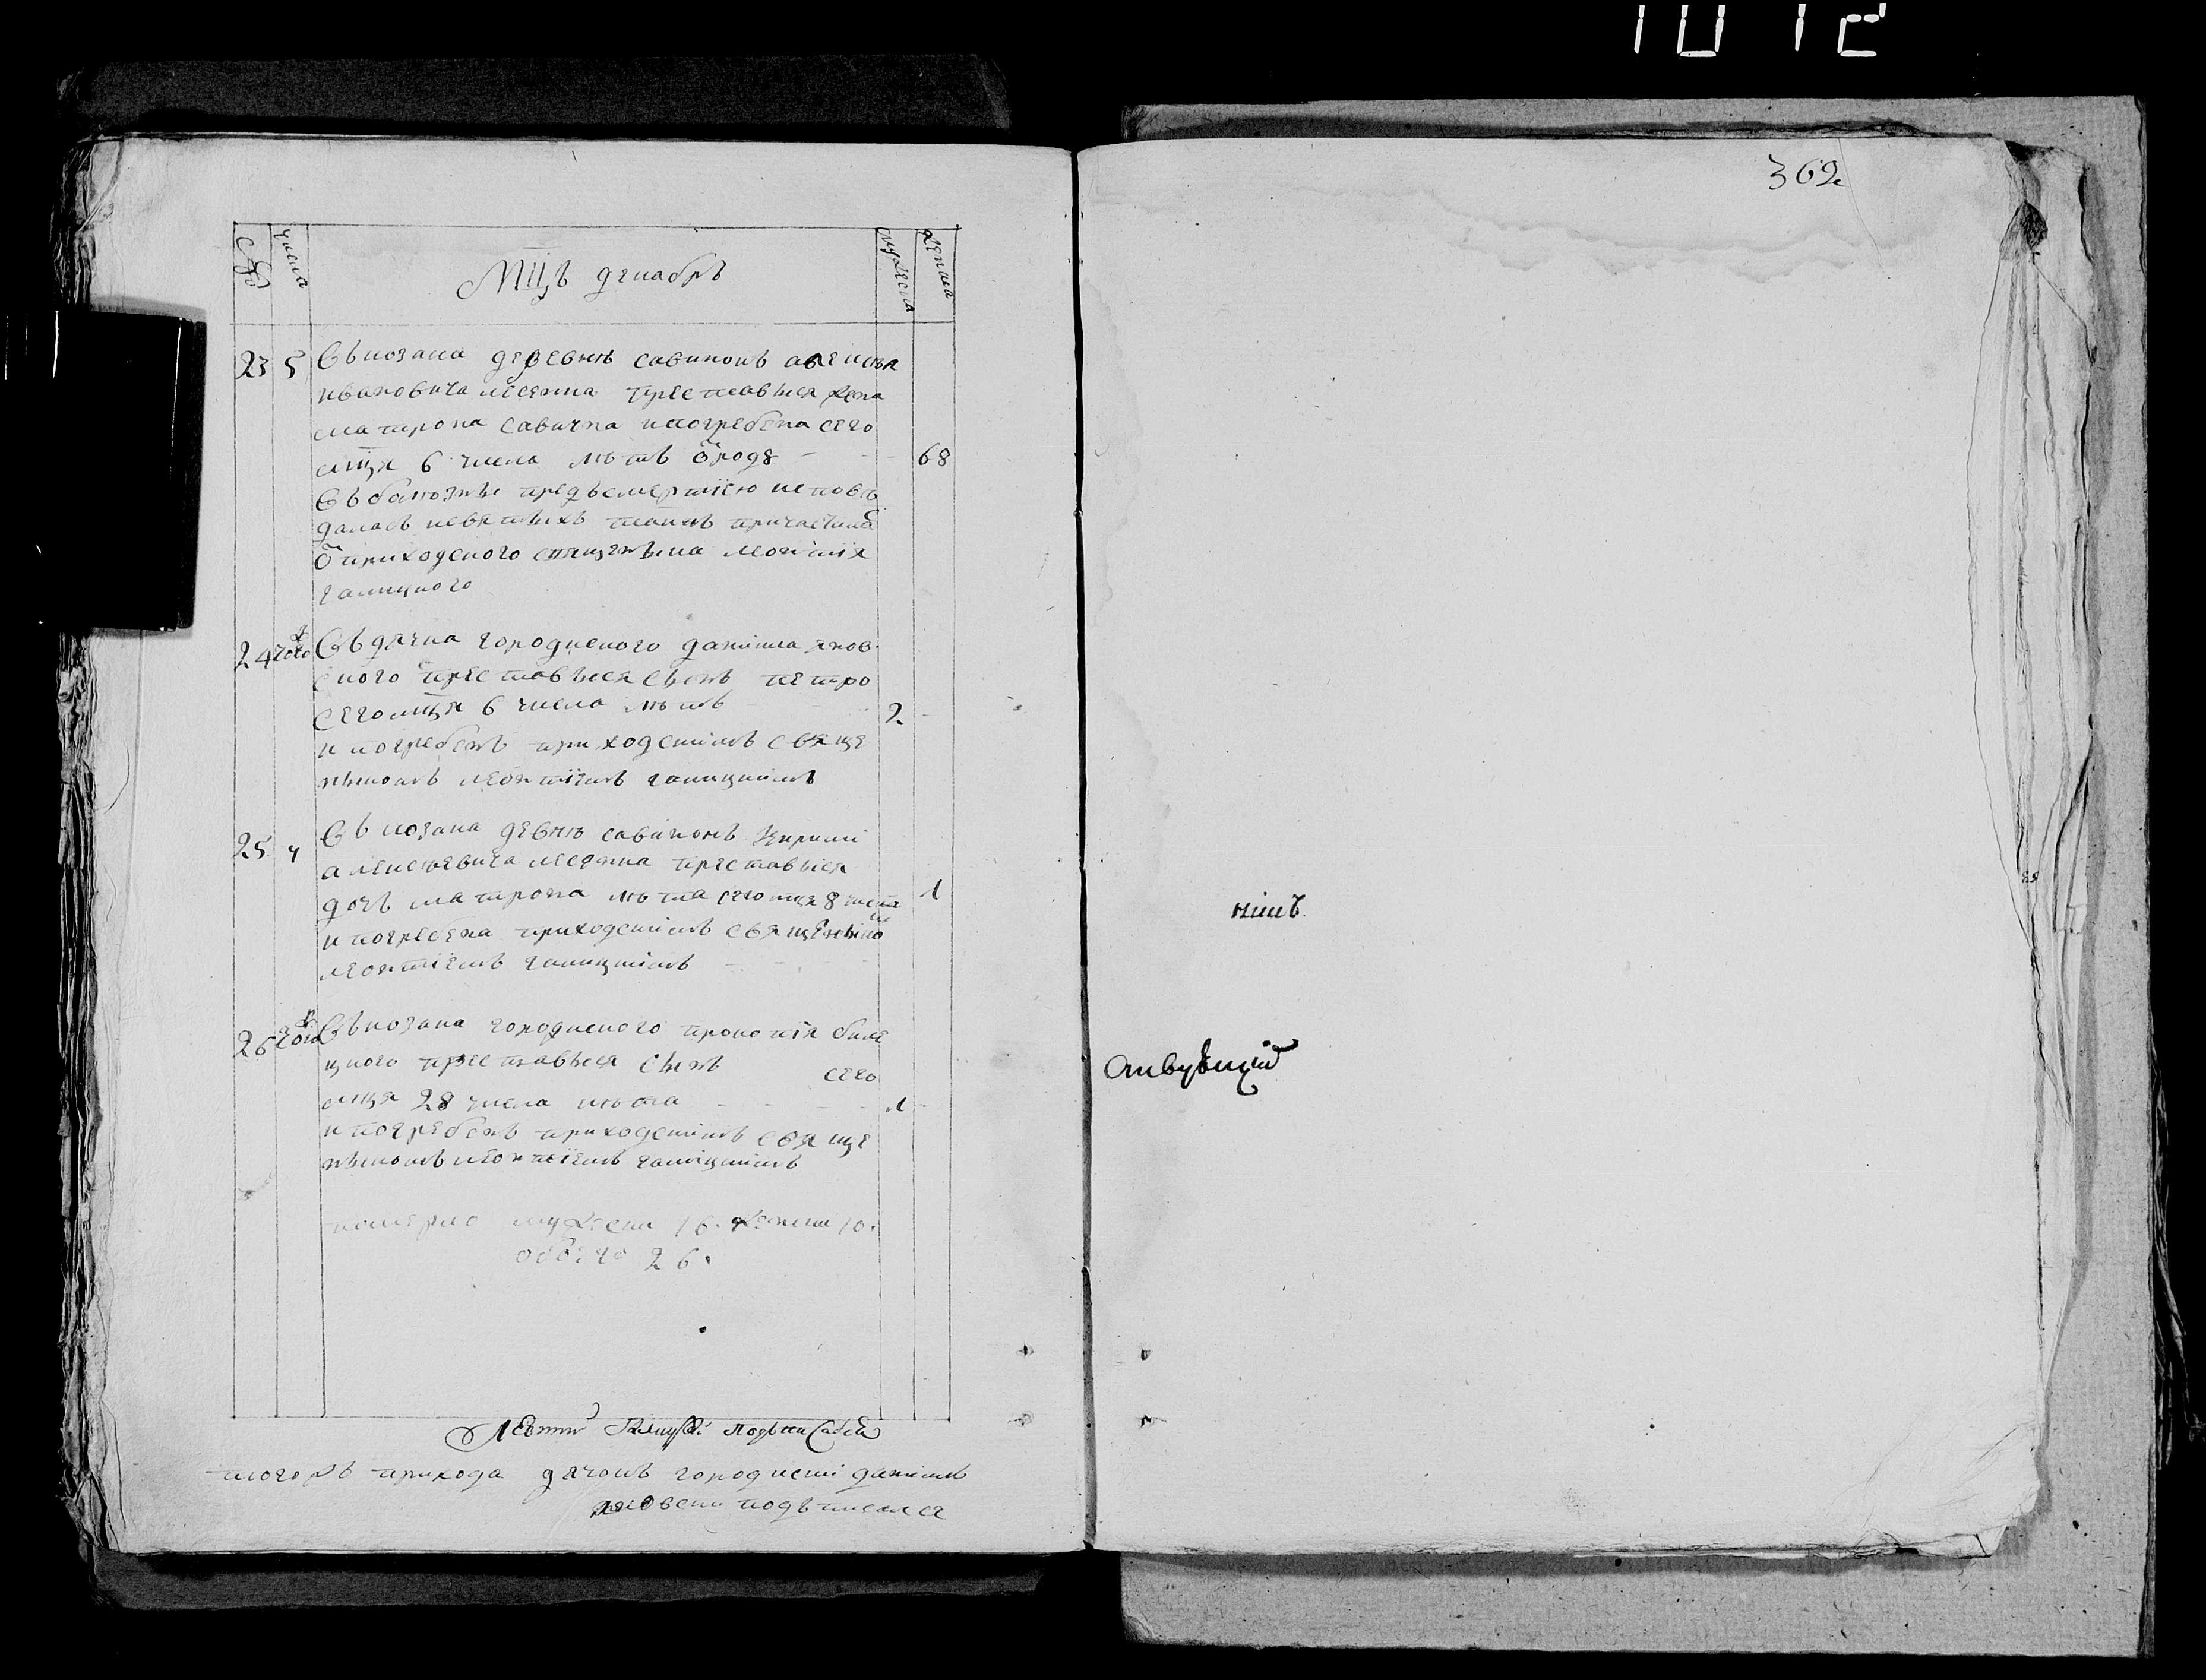 1012
362
числа
мужеска
женска
Мцъ декабръ
23 5 Въ козака деревнѣ савинокъ алексѣя
ивановича лесенка преставися жена
матрона савична ипогребена сего
мца 6 числа лѣтъ ѿроду 68
предъсмертїю исповѣ
далась исвятыхъ таинъ причастила
ѿприходского священника леонтїя
галицкого
24 тогож Въ дячка городиского даніила яков
ского преставися сынъ петро
сегомця 6 числа лѣтъ 2
и погребенъ приходскимъ свяще
никомъ леонтїемъ галицкимъ
25 ч Въ козака девнѣ савинокъ кирила
алексѣевича лесенка преставися
дочъ матрона лѣта сегомця 8 числа 1
и погребена приходскимъ священико
леонтїемъ галицкимъ
26 тогож Въ козака городиского прокопія биле
цкого преставися сынъ сего
мця 28 числа лѣта 1
и погребенъ приходскимъ свяще
никомъ леонтїемъ галицкимъ
померло мужески 16. женски 10.
обоего 26.
Леонтій Галицкій подписался
тогожъ прихода дячокъ городиски даніилъ
яковски подъписался
німъ